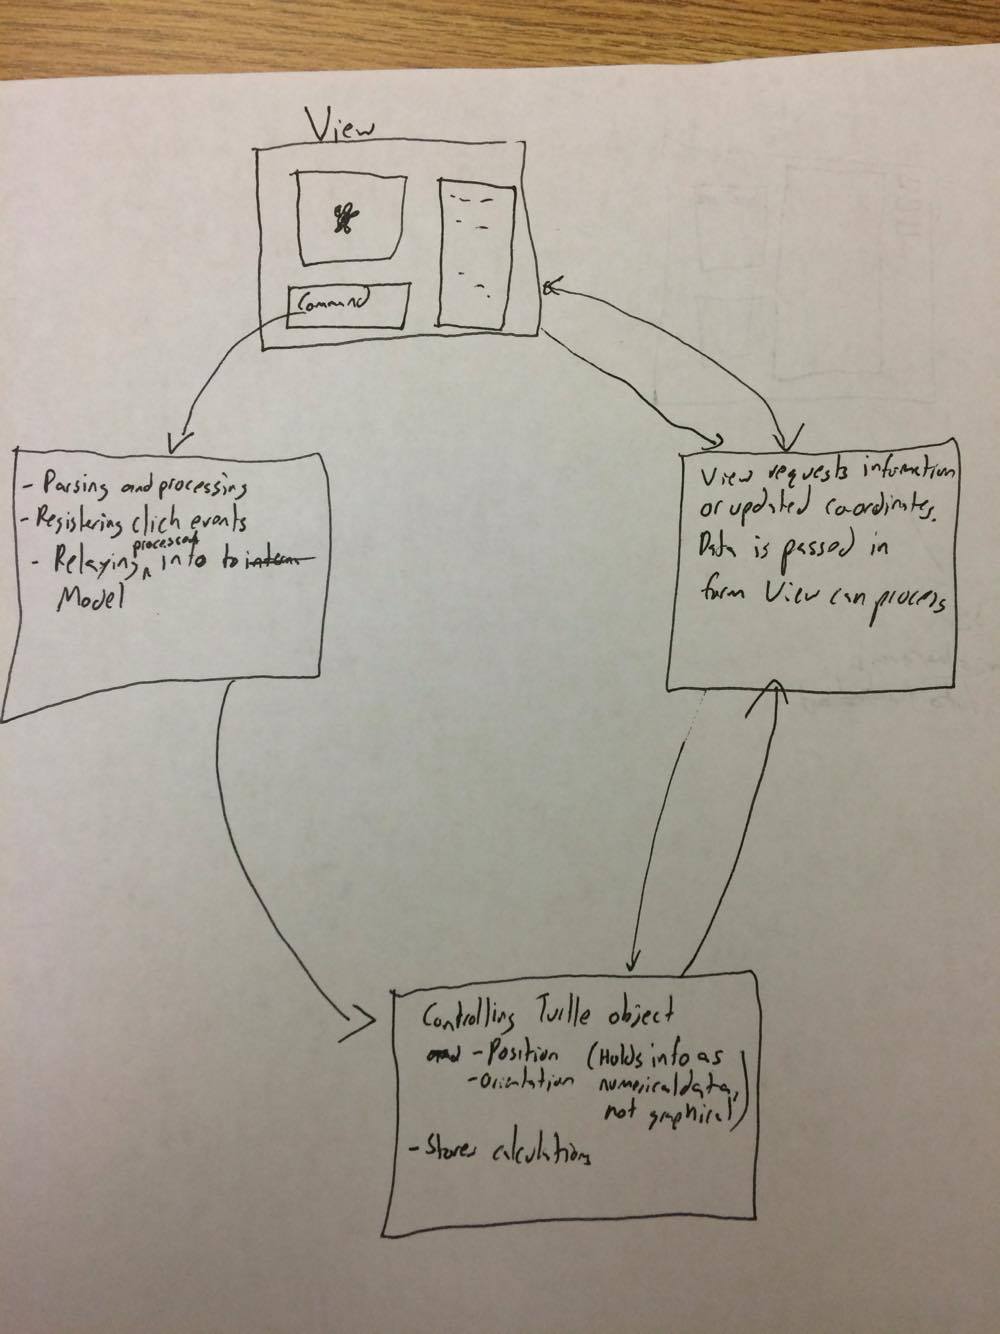 View
Command
- Parsing and processing
- Registering click events
processed
- Relaying ^ info to intern
Model
View requests information
or updated coordinates.
Data is passed in
form View can process
Controlling Turtle object
and - Position (Holds info as
- Orientation numerical data,
not graphical)
- Stores calculations